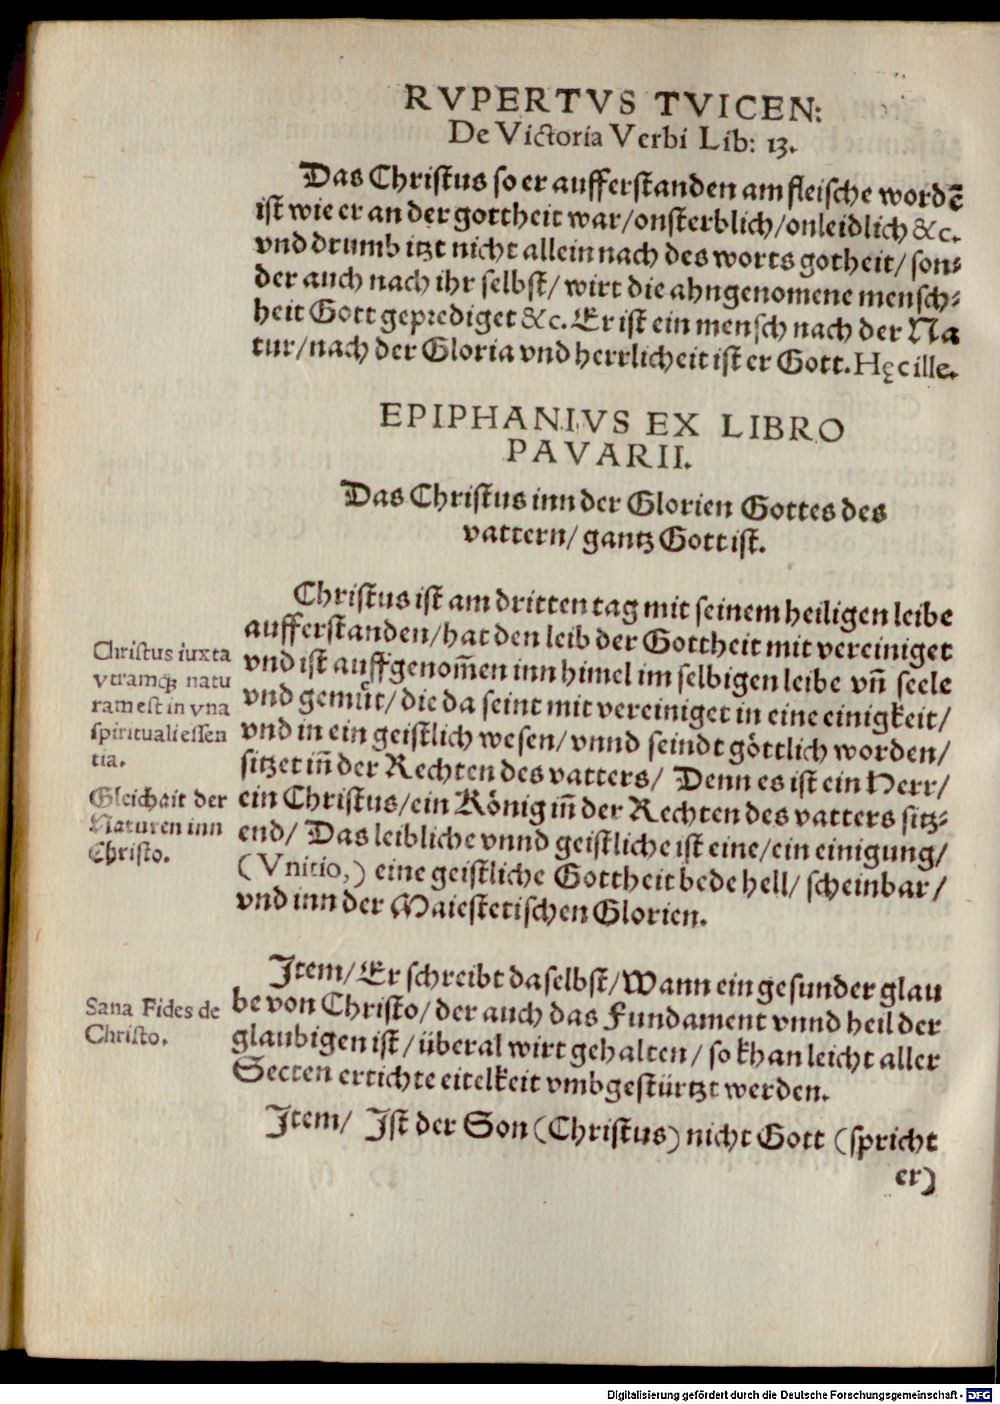 RVPERTVS TVICEN:
De Victoria Verbi Lib: 13.
Das Christus so er aufferstanden am fleische wordē
ist wie er an der gottheit war/onsterblich/onleidlich &c.
vnd drumb itzt nicht allein nach des worts gotheit/ son⸗
der auch nach ihr selbst/ wirt die ahngenomene mensch⸗
heit Gott geprediget &c. Er ist ein mensch nach der Na
tur/nach der Gloria vnd herrlicheit ist er Gott. Hęc ille.
EPIPHANIVS EX LIBRO
PAVARII.
Das Christus inn der Glorien Gottes des
vattern/ gantz Gott ist.
Christus ist am dritten tag mit seinem heiligen leibe
aufferstanden/hat den leib der Gottheit mit vereiniget
vnd ist auffgenom̄en inn himel im selbigen leibe vn̄ seele
vnd gemuͤt/ die da seint mit vereiniget in eine einigkeit/
vnd in ein geistlich wesen/ vnnd seindt göttlich worden/
sitzet in̄ der Rechten des vatters/ Denn es ist ein Herr/
ein Christus/ein König in̄ der Rechten des vatters sitz⸗
end/ Das leibliche vnnd geistliche ist eine/ein einigung/
(Vnitio,) eine geistliche Gottheit bede hell/ scheinbar/
vnd inn der Maiestetischen Glorien.
Christus iuxta
vtramq; natu
ram est in vna
spirituali essen
tia.
Gleichait der
Naturen inn
Christo.
Item/ Er schreibt daselbst/ Wann ein gesunder glau
be von Christo/ der auch das Fundament vnnd heil der
glaubigen ist/ überal wirt gehalten/ so khan leicht aller
Secten ertichte eitelkeit vmbgestürtzt werden.
Sana Fides de
Christo.
Item/ Ist der Son (Christus) nicht Gott (spricht
er)
Digitalisierung gefördert durch die Deutsche Forschungsgemeinschaft - DFG